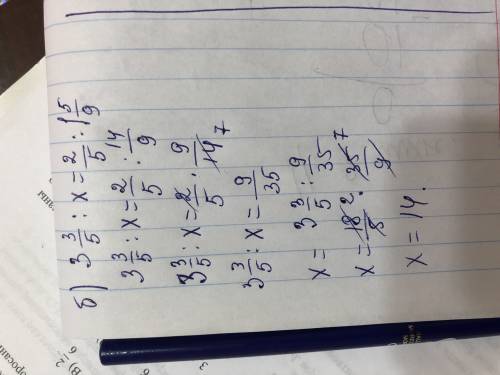 б) 3 3/5 : x = 2/5 : 1 5/9
3 3/5 : x = 2/5 : 14/9
3 3/5 : x = 2/5 · 9/14 7
3 3/5 : x = 9/35
x = 3 3/5 : 9/35
x = 18/5 2 · 35/9 7
x = 14.
В) 1 2/6